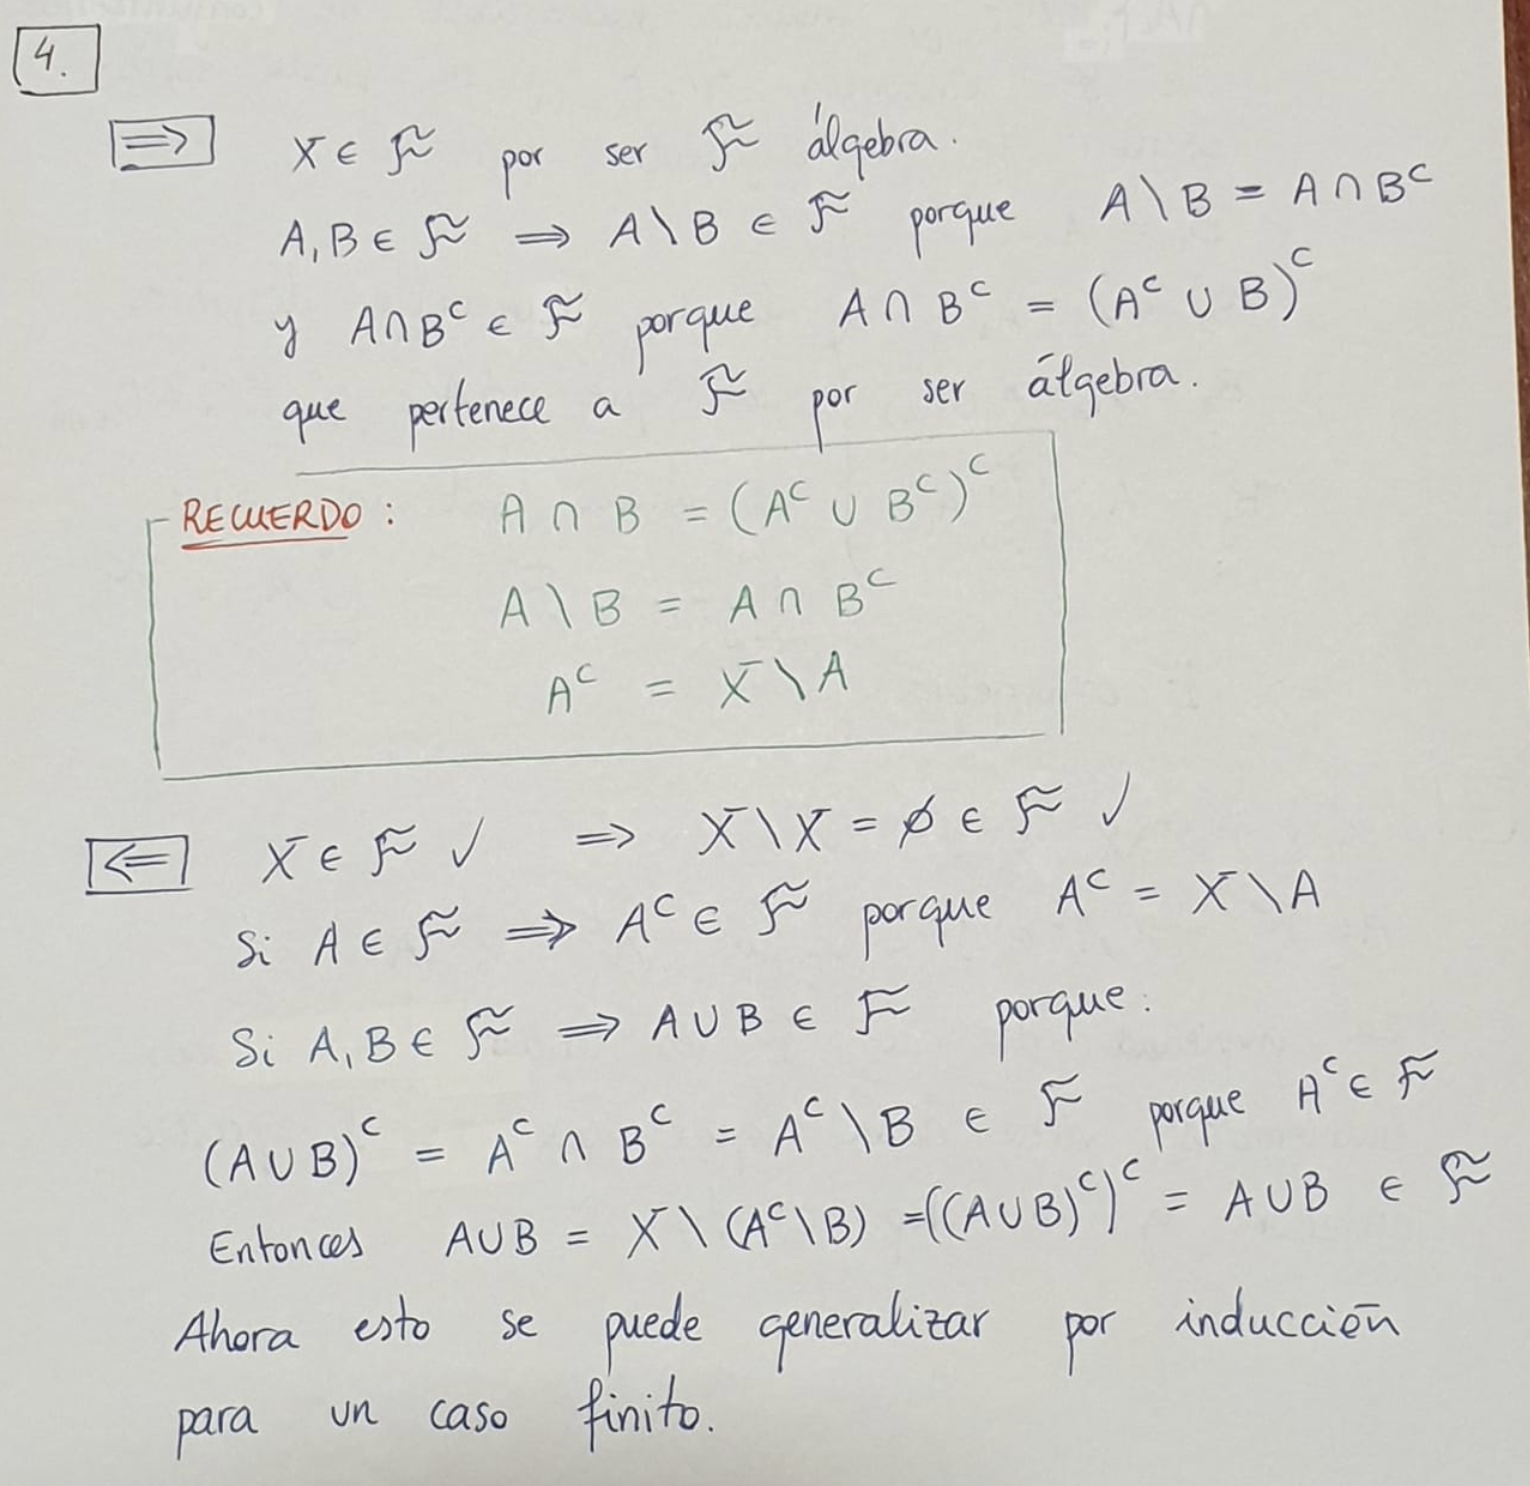 4.
⟹ X ∈ F por ser F álgebra.
A, B ∈ F ⟹ A \ B ∈ F porque A \ B = A ∩ Bᶜ
y A ∩ Bᶜ ∈ F porque A ∩ Bᶜ = (Aᶜ ∪ B)ᶜ
que pertenece a F por ser álgebra.
RECUERDO: A ∩ B = (Aᶜ ∪ Bᶜ)ᶜ
A \ B = A ∩ Bᶜ
Aᶜ = X \ A
⟸ X ∈ F ✓ ⟹ X \ X = ∅ ∈ F ✓
Si A ∈ F ⟹ Aᶜ ∈ F porque Aᶜ = X \ A
Si A, B ∈ F ⟹ A ∪ B ∈ F porque:
(A ∪ B)ᶜ = Aᶜ ∩ Bᶜ = Aᶜ \ B ∈ F porque Aᶜ ∈ F
Entonces A ∪ B = X \ (Aᶜ \ B) = ((A ∪ B)ᶜ)ᶜ = A ∪ B ∈ F
Ahora esto se puede generalizar por inducción
para un caso finito.